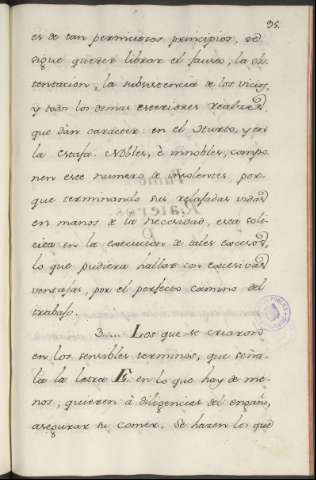 95.
es de tan perniciosos principios, se
sigue querer librar el fausto, la os
tentacion, la subsistencia de los vicios,
y todos los demas exteriores realzes
que dàn caracter en el Hurto, y en
la estafa. Nobles, è innobles, compo
nen este numero de insolentes por
que terminando sus relajadas vidas
en manos de la necesidad, esta soli
cita en la execucion de tales excesos,
lo que pudiera hallar con excesivas
ventajas, por el perfecto camino del
trabajo.
3.... Los que se criaron
en los sensibles terminos, que seña
la la Letra E. en lo que hoy de me
nos, quieren à diligencias del engaño,
asegurar su comer. Se hacen lo que